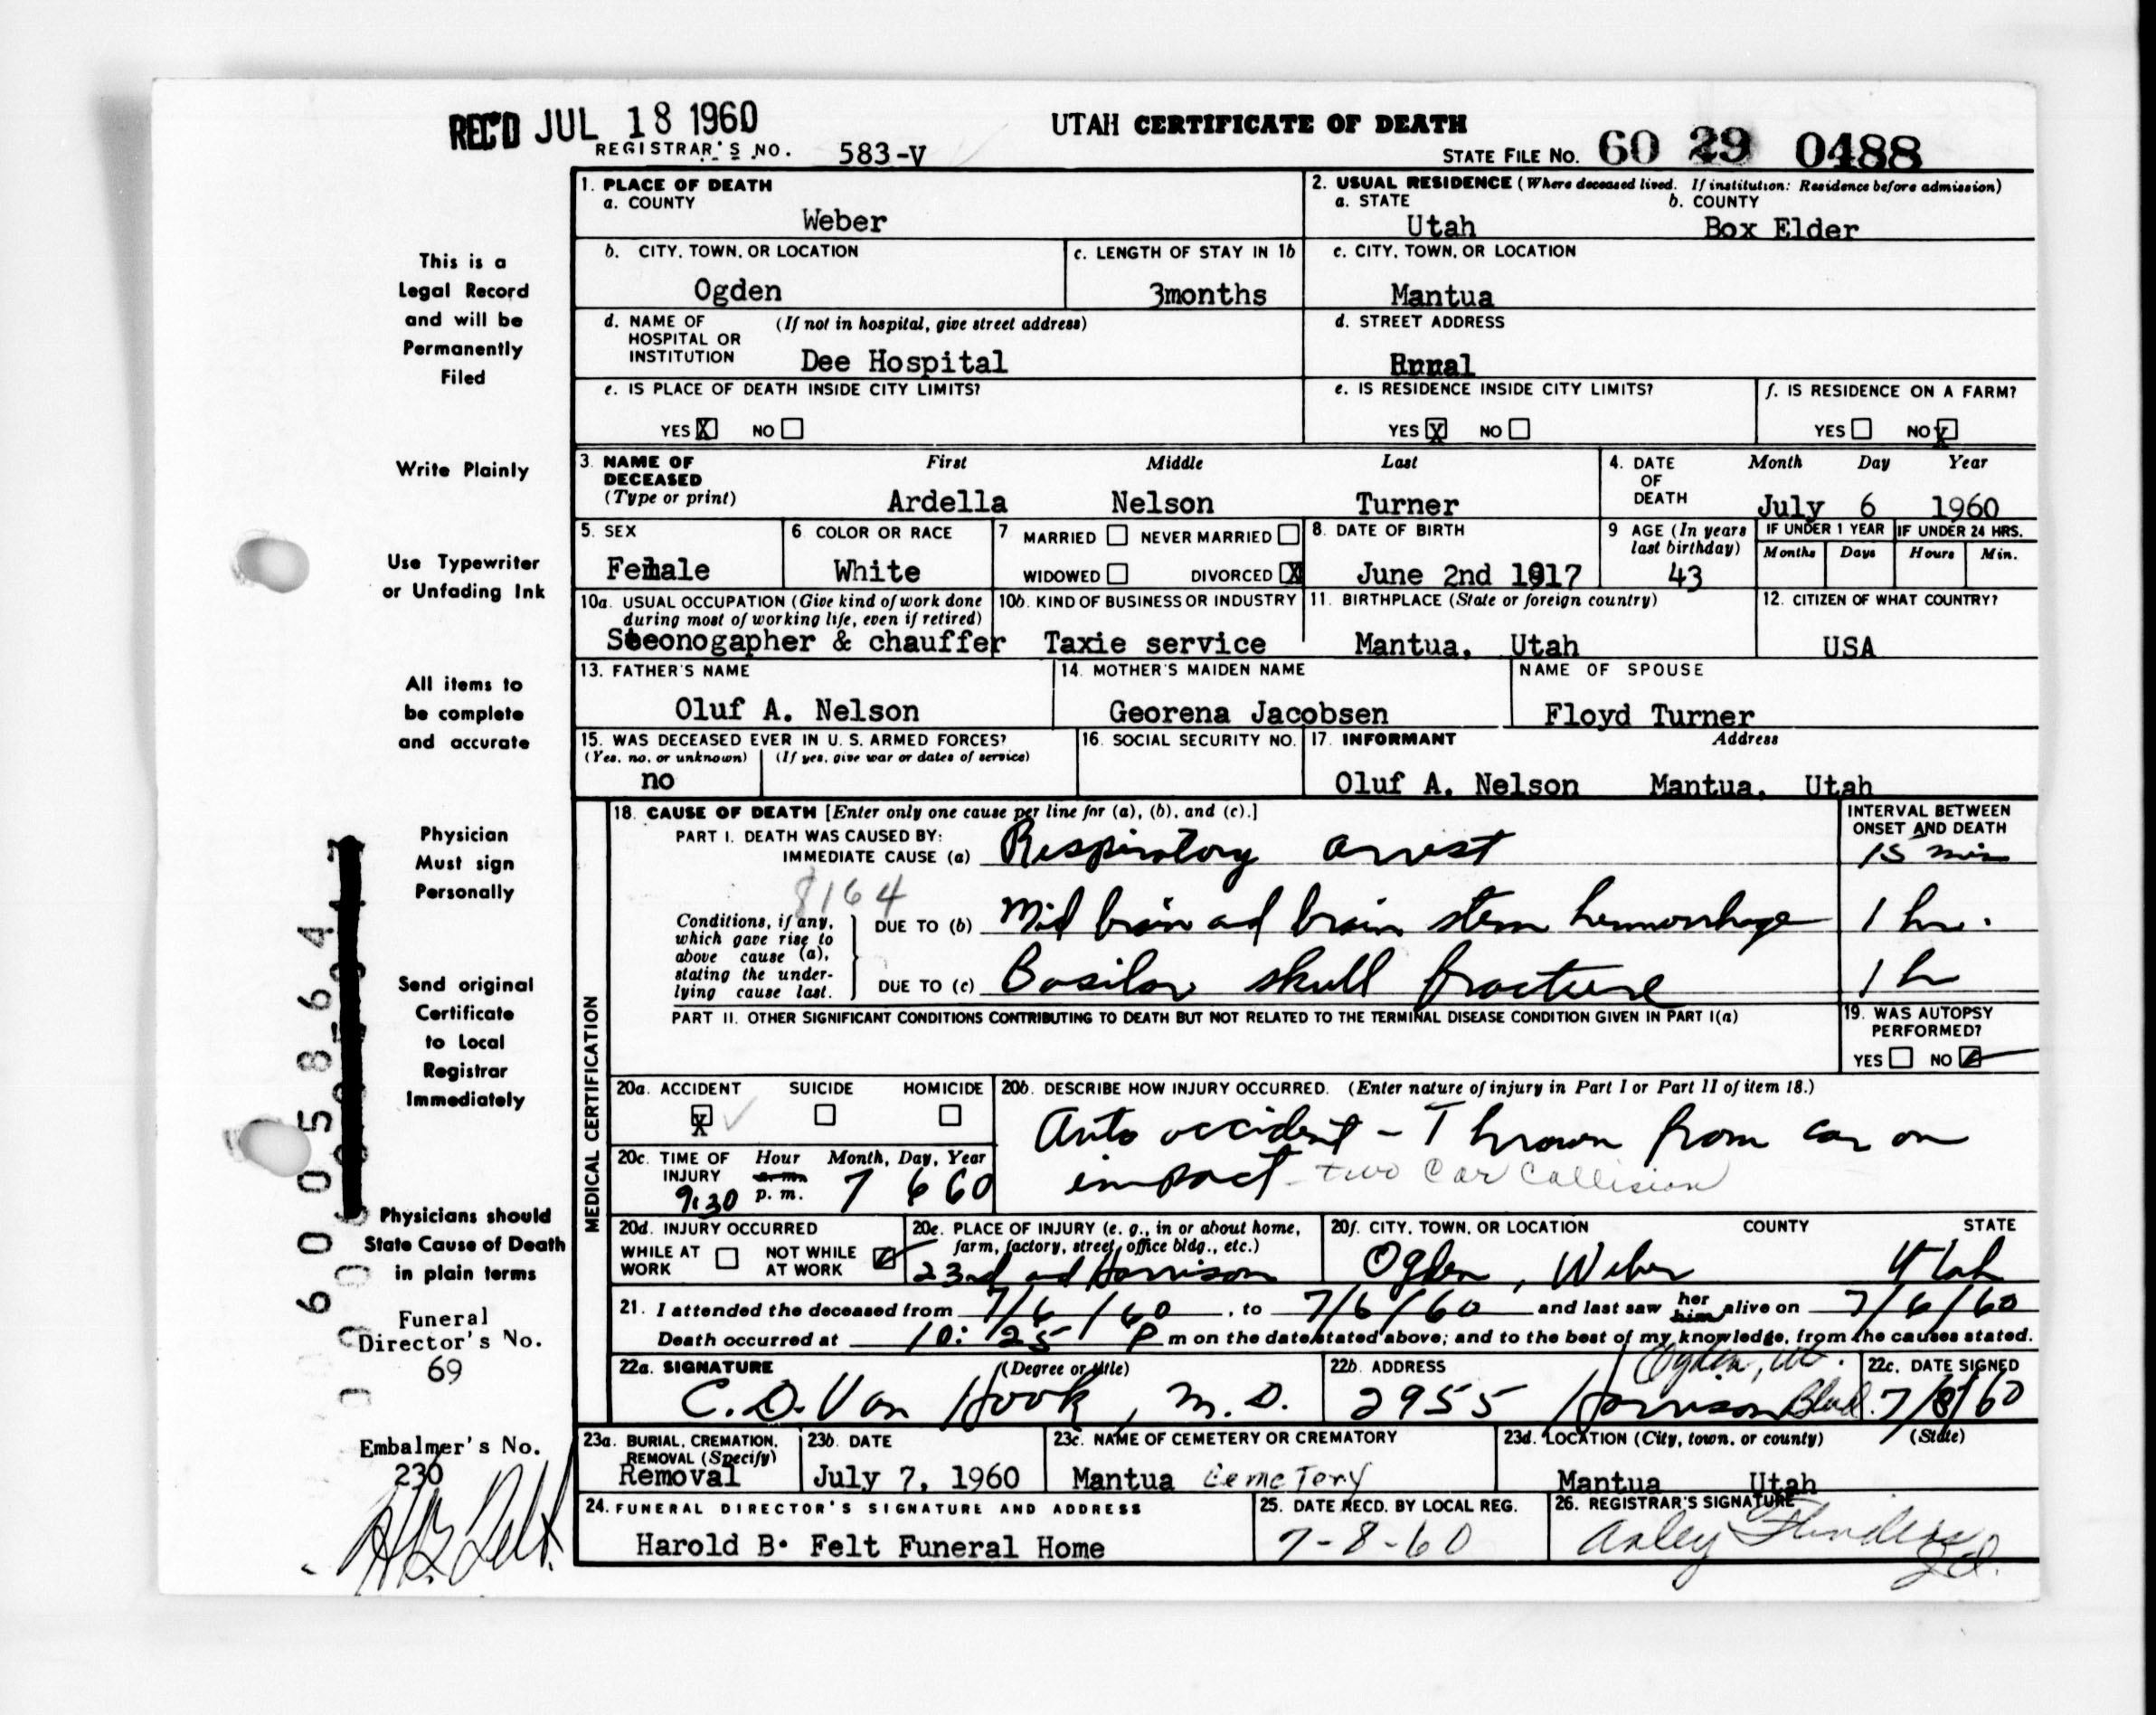 REC'D JUL 18 1960
UTAH CERTIFICATE OF DEATH
REGISTRAR'S NO. 583-V
STATE FILE NO. 60 29 0488
1. PLACE OF DEATH
a. COUNTY
Weber
2. USUAL RESIDENCE (Where deceased lived. If institution: Residence before admission)
a. STATE b. COUNTY
Utah Box Elder
b. CITY, TOWN, OR LOCATION
Ogden
c. LENGTH OF STAY IN 1b
3months
c. CITY, TOWN, OR LOCATION
Mantua
d. NAME OF (If not in hospital, give street address)
HOSPITAL OR
INSTITUTION Dee Hospital
d. STREET ADDRESS
e. IS PLACE OF DEATH INSIDE CITY LIMITS?
YES X NO
e. IS RESIDENCE INSIDE CITY LIMITS?
YES X NO
f. IS RESIDENCE ON A FARM?
YES NO X
3. NAME OF DECEASED (Type or print)
First Middle Last
Ardella Nelson Turner
4. DATE OF DEATH
Month Day Year
July 6 1960
5. SEX
Female
6 COLOR OR RACE
White
7 MARRIED NEVER MARRIED
WIDOWED DIVORCED X
8. DATE OF BIRTH
June 2nd 1917
9 AGE (In years last birthday)
43
IF UNDER 1 YEAR IF UNDER 24 HRS.
Months Days Hours Min.
10a. USUAL OCCUPATION (Give kind of work done
during most of working life, even if retired)
Steonogapher & chauffer
10b. KIND OF BUSINESS OR INDUSTRY
Taxie service
11. BIRTHPLACE (State or foreign country)
Mantua, Utah
12. CITIZEN OF WHAT COUNTRY?
USA
13. FATHER'S NAME
Oluf A. Nelson
14. MOTHER'S MAIDEN NAME
Georena Jacobsen
NAME OF SPOUSE
Floyd Turner
15. WAS DECEASED EVER IN U. S. ARMED FORCES?
(Yes, no, or unknown) (If yes, give war or dates of service)
no
16. SOCIAL SECURITY NO.
17. INFORMANT Address
Oluf A. Nelson Mantua, Utah
18. CAUSE OF DEATH [Enter only one cause per line for (a), (b), and (c).]
INTERVAL BETWEEN ONSET AND DEATH
PART I. DEATH WAS CAUSED BY:
IMMEDIATE CAUSE (a) Respiratory arrest 15 min
8164
Conditions, if any,
which gave rise to
above cause (a),
stating the under-
lying cause last.
DUE TO (b) Mid brain ad brain stem hemorrhage 1 hr.
DUE TO (c) Basilar skull fracture 1 hr
PART II. OTHER SIGNIFICANT CONDITIONS CONTRIBUTING TO DEATH BUT NOT RELATED TO THE TERMINAL DISEASE CONDITION GIVEN IN PART I(a)
19. WAS AUTOPSY PERFORMED?
YES NO
MEDICAL CERTIFICATION
20a. ACCIDENT SUICIDE HOMICIDE
X
20b. DESCRIBE HOW INJURY OCCURRED. (Enter nature of injury in Part I or Part II of item 18.)
Auto accident - Thrown from car on
impact - two car collision
20c. TIME OF INJURY Hour Month, Day, Year
a. m.
9:30 p. m. 7 6 60
20d. INJURY OCCURRED
WHILE AT WORK NOT WHILE AT WORK
20e. PLACE OF INJURY (e. g., in or about home,
farm, factory, street, office bldg., etc.)
23rd and Harrison
20f. CITY, TOWN, OR LOCATION COUNTY STATE
Ogden, Weber Utah
21. I attended the deceased from 7/6/60, to 7/6/60 and last saw her him alive on 7/6/60
Death occurred at 10:25 P m on the date stated above; and to the best of my knowledge, from the causes stated.
22a. SIGNATURE (Degree or title)
C. D. Van Hook, M. D.
22b. ADDRESS
Ogden, Ut.
2955 Harrison Blvd.
22c. DATE SIGNED
7/8/60
23a. BURIAL, CREMATION, REMOVAL (Specify)
Removal
23b. DATE
July 7, 1960
23c. NAME OF CEMETERY OR CREMATORY
Mantua Cemetery
23d. LOCATION (City, town, or county) (State)
Mantua Utah
24. FUNERAL DIRECTOR'S SIGNATURE AND ADDRESS
Harold B. Felt Funeral Home
25. DATE RECD. BY LOCAL REG.
7-8-60
26. REGISTRAR'S SIGNATURE
This is a
Legal Record
and will be
Permanently
Filed
Write Plainly
Use Typewriter
or Unfading Ink
All items to
be complete
and accurate
Physician
Must sign
Personally
Send original
Certificate
to Local
Registrar
Immediately
Physicians should
State Cause of Death
in plain terms
Funeral
Director's No.
69
Embalmer's No.
230